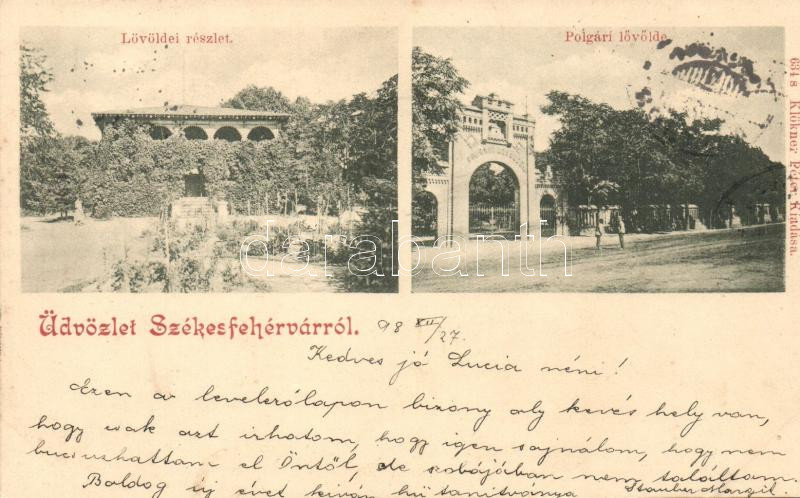 Lövöldei részlet.
Polgári lövölde
634 s Klökner Péter Kiadása.
darabanth.com
Üdvözlet Székesfehérvárról.
98 XII/27.
Kedves jó Lucia néni!
Ezen a levelezőlapon bizony oly kevés hely van,
hogy csak azt irhatom, hogy igen sajnálom, hogy nem
bucsuzhattam el Öntől, de szobájában nem találtam.
Boldog új évet kiván hű tanitványa